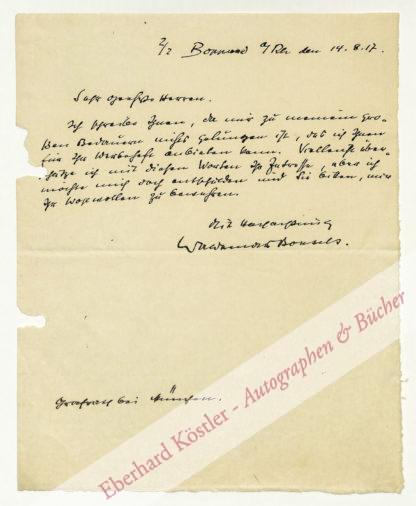 z/z Bonn a/Rh den 14.8.17.
Sehr geehrte Herren.
Ich schreibe Ihnen, da mir zu meinem gro-
ßen Bedauern nichts gelungen ist, das ich Ihnen
für Ihr Werbeheft anbieten kann. Vielleicht über-
schätze ich mit diesen Worten Ihr Interesse, aber ich
möchte mich doch entschuldigen und Sie bitten, mir
Ihr Wohlwollen zu bewahren.
Mit Hochachtung
Waldemar Bonsels.
bei München.
Eberhard Köstler - Autographen & Bücher